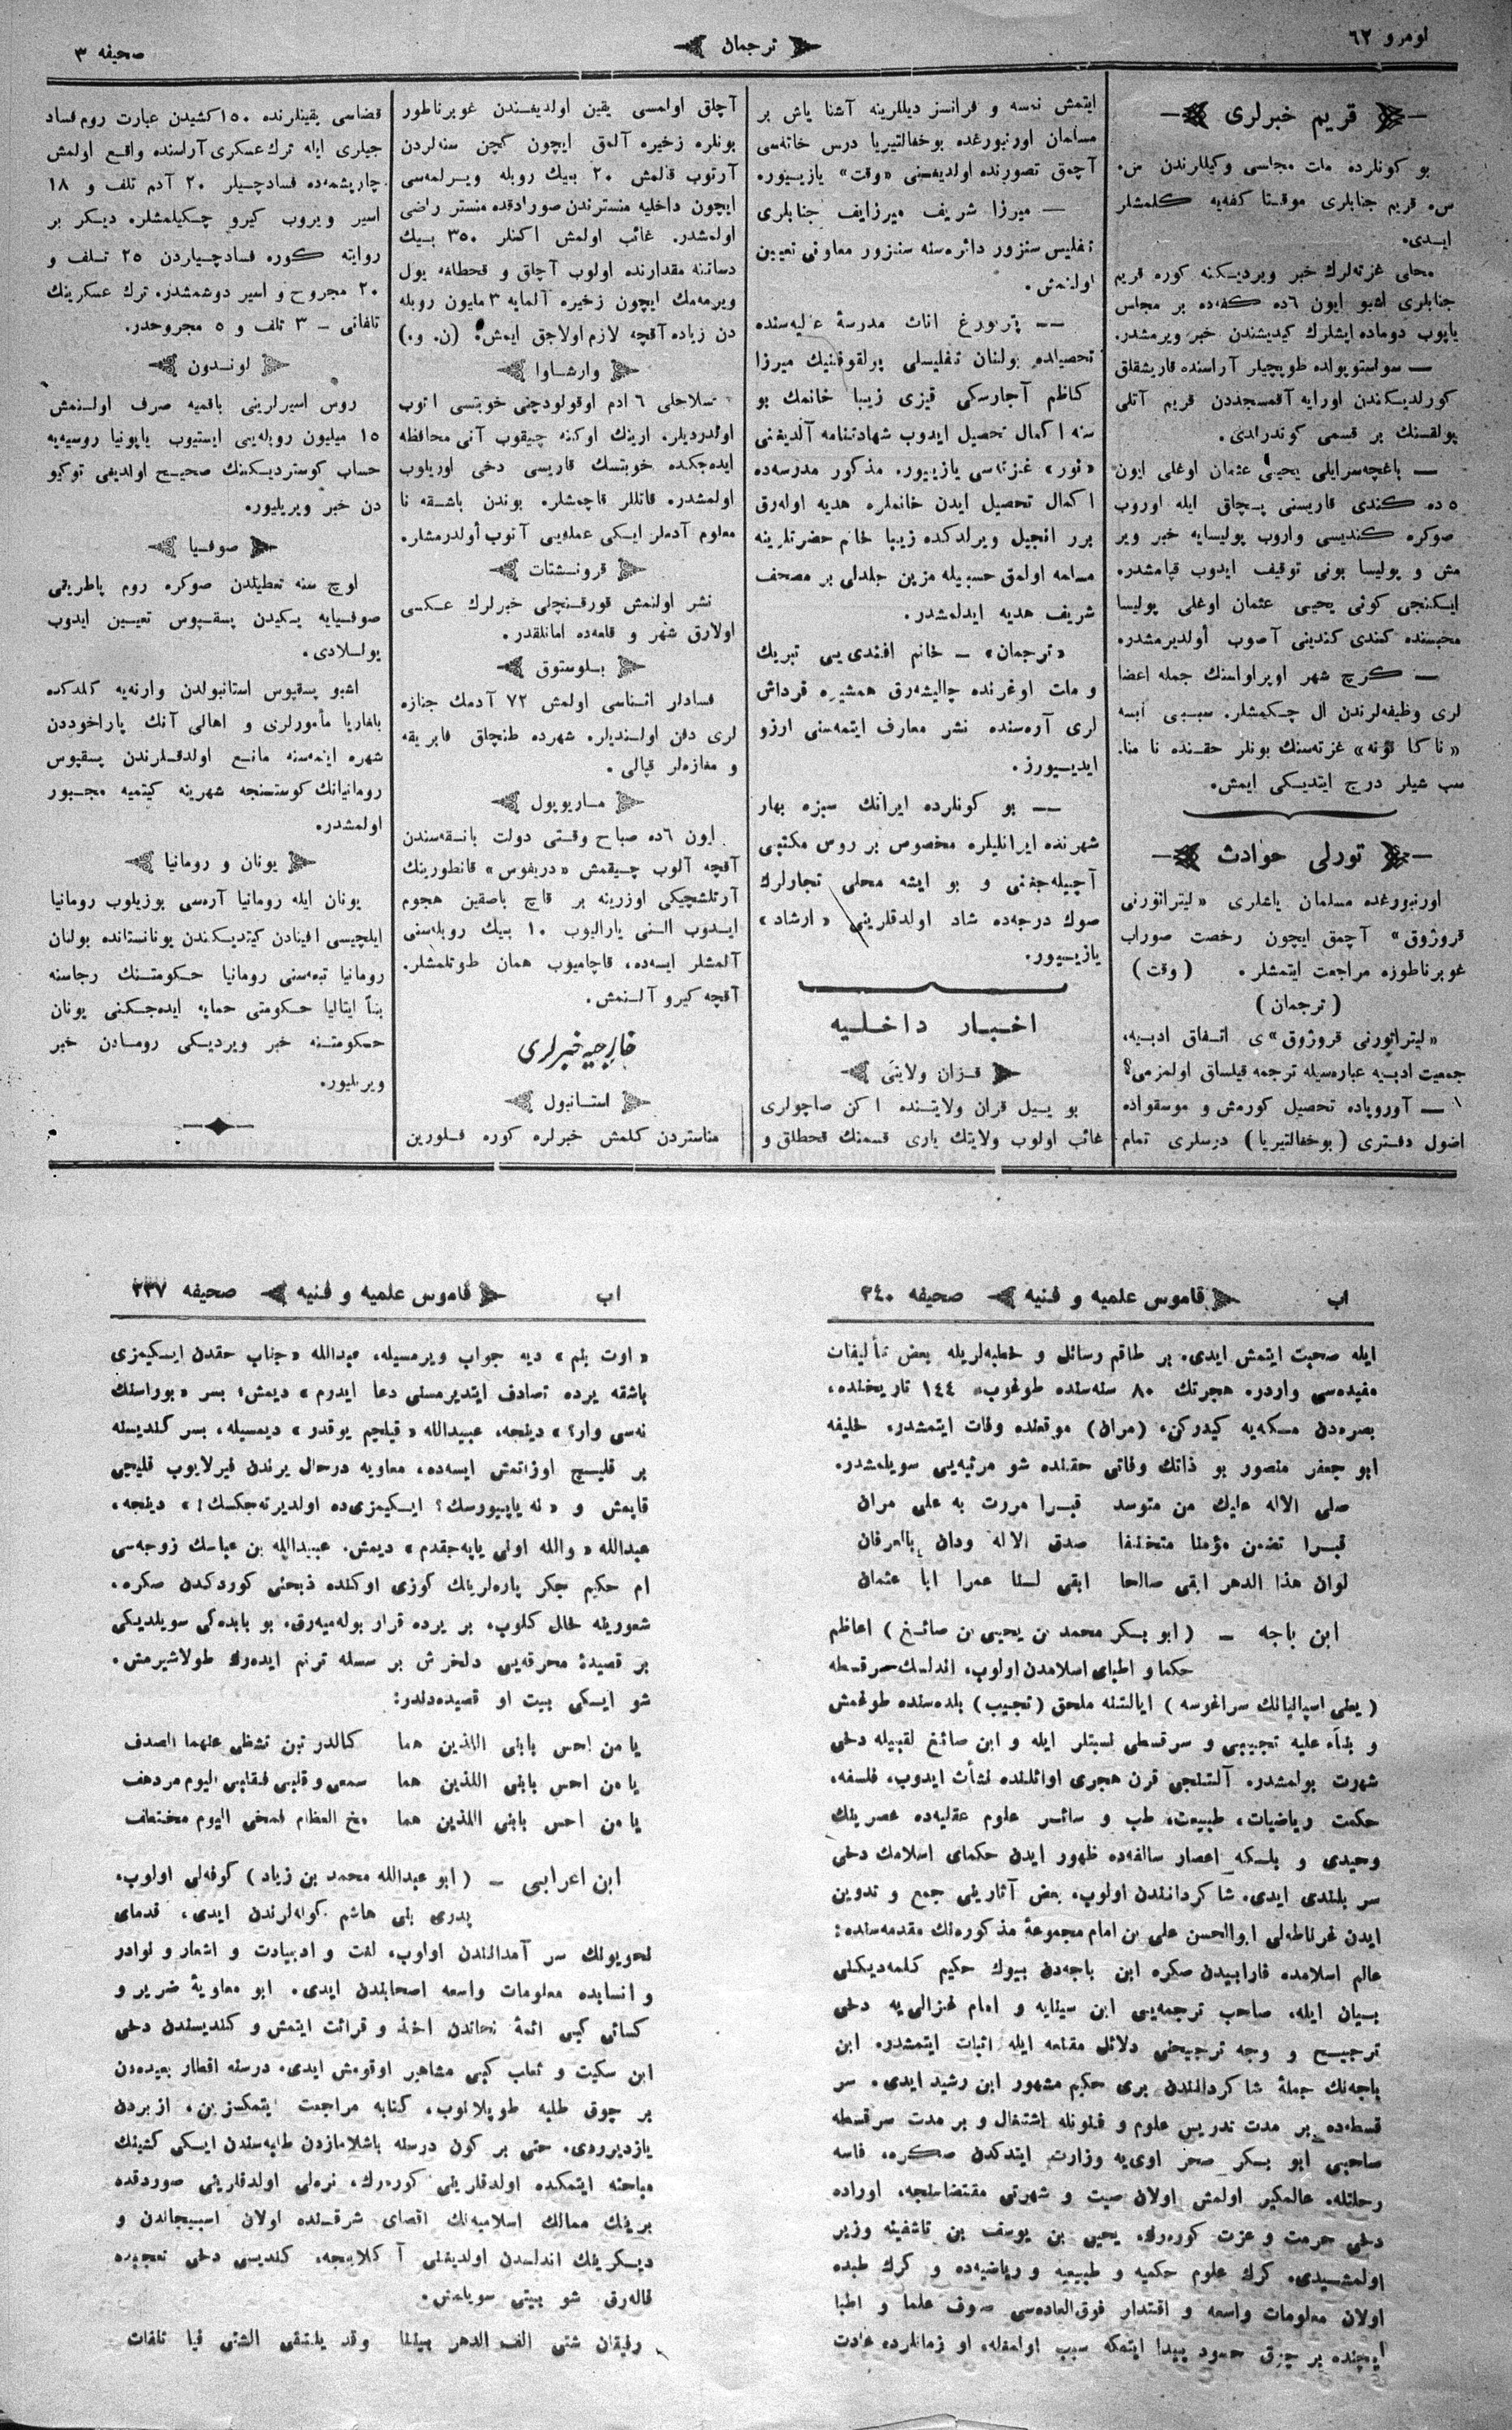 نومرو ٦٢
ترجمان
صحیفه ٣
قریم خبرلری
بو کونلرده ملت مجلسی وکیللرندن من.
س. قریم جنابلری موقتا کفه‌یه کلمشلر
ایدی.
محلی غزته‌لرك خبر ویردیکنه کوره قریم
جنابلری اشبو ایون ٦ده کفه‌ده بر مجلس
یاپوب دوماده ایشلرك کیدیشندن خبر ویرمشدر.
— سواستوپولده طوپچیلر آراسنده قاریشقلق
کورلدیکندن اورایه آقمسجددن قریم آتلی
پولقسنك بر قسمی کوندرلدی.
— باغچه‌سرایلی یحیی عثمان اوغلی ایون
٥ ده کندی قاریسنی پچاق ایله اوروب
صوکره کندیسی واروب پولیسایه خبر ویر
مش و پولیسا بونی توقیف ایدوب قپامشدر.
ایکنجی کونی یحیی عثمان اوغلی پولیسا
محبسنده کندی کندینی آصوب أولدیرمشدر.
— کرچ شهر اوپراواسنك جمله اعضا
لری وظیفه‌لرندن ال چکمشلر. سببی ایسه
غزته‌سنك بونلر حقنده نا منا.
سب شیلر درج ایتدیکی ایمش.
تورلی حوادث
اورنبورغده مسلمان یاشلری «لیتراتورنی
قروژوق» آچمق ایچون رخصت صوراب
غوبرناطوره مراجعت ایتمشلر. (وقت)
(ترجمان)
«لیتراتورنی قروژوق»ی اتفاق ادبیه،
جمعیت ادبیه عباره‌سیله ترجمه قیلساق اولمزمی؟
— آوروپاده تحصیل کورمش و موسقواده
اصول دفتری (بوخغالتیریا) درسلری تمام
ایتمش نمسه و فرانسز دیللرینه آشنا یاش بر
مسلمان اورنبورغده بوخغالتیریا درس خانه‌سی
آچمق تصورنده اولدیغنی «وقت» یازییور.
— میرزا شریف میرزایف جنابلری
تفلیس سنزور دائره‌سنه سنزور معاونی تعیین
اولنمش.
— پتربورغ اناث مدرسهٔ عالیه‌سنده
تحصیلده بولنان تفلیسلی پولقوفنیك میرزا
کاظم آجارسکی قیزی زیبا خانمك بو
سنه اکمال تحصیل ایدوب شهادتنامه آلدیغنی
«نور» غزته‌سی یازییور. مذکور مدرسه‌ده
اکمال تحصیل ایدن خانملره هدیه اوله‌رق
برر انجیل ویرلدکده زیبا خانم حضرتلرینه
مسلمه اولمق حسبیله مزین جلدلی بر مصحف
شریف هدیه ایدلمشدر.
«ترجمان» — خانم افندی‌یی تبریك
و ملت اوغرنده چالیشه‌رق همشیره قرداش
لری آره‌سنده نشر معارف ایتمه‌سنی ارزو
ایدییورز.
— بو کونلرده ایرانك سبزه بهار
شهرنده ایرانلیلره مخصوص بر روس مکتبی
آچیله‌جغنی و بو ایشه محلی تجارلرك
صوك درجه‌ده شاد اولدقلرینی «ارشاد»
یازییور.
اخبار داخلیه
قزان ولایتی
بو ییل قزان ولایتنده اکن صاچولری
غائب اولوب ولایتك یاری قسمنك قحطلق و
آچلق اولمسی یقین اولدیغندن غوبرناطور
بونلره زخیره آلمق ایچون کچن سنه‌لردن
آرتوب قالمش ٢٠ بیك روبله ویرلمه‌سی
ایچون داخلیه منسترندن صورادقده منستر راضی
اولمشدر. غائب اولمش اکنلر ٣٥٠ بیك
دساتنه مقدارنده اولوب آچلق و قحطلغه یول
ویرمه‌مك ایچون زخیره آلمایه ٣ ملیون روبله
دن زیاده آقچه لازم اولاجق ایمش. (ن. و.)
وارشاوا
سلاحلی ٦ ادم اوقولودچنی خوبتسی اتوب
اولدردیلر. ارینك اوکنه چیقوب آنی محافظه
ایده‌جکده خوبتسك قاریسی دخی اوریلوب
اولمشدر. قاتللر قاچمشلر. بوندن باشقه نا
معلوم آدملر ایکی عمله‌یی آتوب أولدرمشلر.
قرونشتات
نشر اولنمش قورقنچلی خبرلرك عکسی
اولارق شهر و قلعه‌ده امانلقدر.
بلوستوق
فسادلر اثناسی اولمش ٧٢ آدمك جنازه
لری دفن اولندیلر. شهرده طنچلق فابریقه
و مغازه‌لر قپالی.
ماریوپول
ایون ٦ده صباح وقتی دولت بانقه‌سندن
آقچه آلوب چیقمش «دریفوس» قانطورینك
آرتلشچیکی اوزرینه بر قاچ باصقین هجوم
ایدوب النی یارالیوب ١٠ بیك روبله‌سنی
آلمشلر ایسه‌ده، قاچامیوب همان طوتلمشلر.
آقچه کیرو آلنمش.
خارجیه خبرلری
استانبول
مناستردن کلمش خبرلره کوره فلورین
قضاسی یقینلرنده ١٥٠ کشیدن عبارت روم فساد
جیلری ایله ترك عسکری آراسنده واقع اولمش
چاریشمه‌ده فسادچیلر ٢٠ آدم تلف و ١٨
اسیر ویروب کیرو چکیلمشلر. دیکر بر
روایته کوره فسادچیلردن ٢٥ تلف و
٢٠ مجروح و اسیر دوشمشدر. ترك عسکرینك
تلفاتی — ٣ تلف و ٥ مجروحدر.
لوندون
روس اسیرلرینی باقمیه صرف اولنمش
١٥ میلیون روبله‌یی ایستیوب یاپونیا روسیه‌یه
حساب کوستردیکینك صحیح اولدیغی توکیو
دن خبر ویریلیور.
صوفیا
اوچ سنه تعطیلدن صوکره روم پاطریقی
صوفیایه یکیدن پسقپوس تعیین ایدوب
یوللادی.
اشبو پسقپوس استانبولدن وارنه‌یه کلدکده
بلغاریا مأمورلری و اهالی آنك پاراخوددن
شهره اینمه‌سنه مانع اولدقلرندن پسقپوس
رومانیانك کوستنجه شهرینه کیتمیه مجبور
اولمشدر.
یونان و رومانیا
یونان ایله رومانیا آره‌سی بوزیلوب رومانیا
ایلچیسی افینادن کیتدیکندن یونانستانده بولنان
رومانیا تبعه‌سنی رومانیا حکومتنك رجاسنه
بنأ ایتالیا حکومتی حمایه ایده‌جکنی یونان
حکومتنه خبر ویردیکی رومادن خبر
ویریلیور.
اب
قاموس علمیه و فنیه
صحیفه ٣٤٠
ایله صحبت ایتمش ایدی. بر طاقم رسائل و خطبه‌لریله بعض تألیفات
مفیده‌سی واردر. هجرتك ٨٠ سنه‌سنده طوغوب، ١٤٤ تاریخنده،
بصره‌دن مکه‌یه کیدرکن، (مران) موقعنده وفات ایتمشدر. خلیفه
ابو جعفر منصور بو ذاتك وفاتی حقنده شو مرثیه‌یی سویلمشدر.
صلی الاله علیك من متوسد قبرا مررت به علی مران
قبرا تضمن مؤمنا متخنفا صدق الاله ودان بالعرفان
لوان هذا الدهر ابقی صالحا ابقی لنا عمرا ابا عثمان
ابن باجه — (ابو بکر محمد بن یحیی بن صائغ) اعاظم
حکما و اطبای اسلامدن اولوب، اندلسك سرقسطه
(یعنی اسپانیانك سراغوسه) ایالتنه ملحق (تجیب) بلده‌سنده طوغمش
و بناء علیه تجیبی و سرقسطی نسبتلر ایله و ابن صائغ لقبیله دخی
شهرت بولمشدر. آلتنجی قرن هجری اوائلنده نشأت ایدوب، فلسفه،
حکمت ریاضیات، طبیعت، طب و سائر علوم عقلیه‌ده عصرینك
وحیدی و بلکه اعصار سالفه‌ده ظهور ایدن حکمای اسلامك دخی
سر بلندی ایدی. شاکردانندن اولوب، بعض آثارینی جمع و تدوین
ایدن غرناطه‌لی ابوالحسن علی بن امام مجموعهٔ مذکوره‌نك مقدمه‌سنده:
عالم اسلامده فارابیدن صکره ابن باجه‌دن بیوك حکیم کلمه‌دیکنی
بیان ایله، صاحب ترجمه‌یی ابن سینایه و امام غزالی‌یه دخی
ترجیح و وجه ترجیحنی دلائل مقنعه ایله اثبات ایتمشدر. ابن
باجه‌نك جملهٔ شاکردانندن بری حکیم مشهور ابن رشید ایدی. سر
قسطه‌ده بر مدت تدریس علوم و فنونله اشتغال و بر مدت سرقسطه
صاحبی ابو بکر صحراوی‌یه وزارت ایتدکدن صکره، فاسه
رحلتله، عالمکیر اولمش اولان صیت و شهرتی مقتضاسنجه، اوراده
دخی حرمت و عزت کوره‌رك، یحیی بن یوسف بن تاشفینه وزیر
اولمشیدی. کرك علوم حکمیه و طبیعیه و ریاضیه‌ده و کرك طبده
اولان معلومات واسعه و اقتدار فوق‌العاده‌سی صوف علما و اطبا
ایچنده بر چوق حسود پیدا ایتمکه سبب اولمغله، او زمانلرده عادت
اب
قاموس علمیه و فنیه
صحیفه ٣٣٧
«اوت بنم» دیه جواب ویرمسیله، عبدالله «جناب حقدن ایکیمزی
باشقه یرده تصادف ایتدیرمسنی دعا ایدرم» دیمش؛ بسر «بوراسنك
نه‌سی وار؟» دینجه، عبیدالله «قیلجم یوقدر» دیمسیله، بسر کندیسنه
بر قلیچ اوزاتمش ایسه‌ده، معاویه درحال یرندن فیرلایوب قلیجی
قاپمش و «نه یاپییورسك؟ ایکیمزی‌ده اولدیرته‌جکسك!» دینجه،
عبدالله «والله اونی یاپه‌جقدم» دیمش. عبیدالله بن عباسك زوجه‌سی
ام حکیم جکر پاره‌لرینك کوزی اوکنده ذبحنی کوردکدن صکره،
شعورینه خلل کلوب، بر یرده قرار بوله‌میه‌رق، بو بابده‌کی سویلدیکی
بر قصیدهٔ محرقه‌یی دلخرش بر سسله ترنم ایده‌رك طولاشیرمش.
شو ایکی بیت او قصیده‌دندر:
یا من احس بابنی اللذین هما کالدرتین تشظی عنهما الصدف
یا من احس بابنی اللذین هما سمعی و قلبی فقلبی الیوم مزدهف
یا من احس بابنی اللذین هما مخ العظام فمخی الیوم مختطف
ابن اعرابی — (ابو عبدالله محمد بن زیاد) کوفه‌لی اولوب،
پدری بنی هاشم کوله‌لرندن ایدی، قدمای
نحویونك سر آمدانندن اولوب، لغت و ادبیادت و اشعار و نوادر
و انسابده معلومات واسعه اصحابندن ایدی. ابو معاویهٔ ضریر و
کسائی کبی ائمهٔ نحاتدن اخذ و قرائت ایتمش و کندیسندن دخی
ابن سکیت و ثعلب کبی مشاهیر اوقومش ایدی. درسنه اقطار بعیده‌دن
بر چوق طلبه طوپلانوب، کتابه مراجعت ایتمکسزین، ازبردن
یازدیرردی. حتی بر کون درسنه باشلامازدن طلبه‌سندن ایکی کشینك
مباحثه ایتمکده اولدقلرینی کوره‌رك، نره‌لی اولدقلرینی صوردقده
برینك ممالك اسلامیه‌نك اقصای شرقنده اولان اسبیجاندن و
دیکرینك اندلسدن اولدیغنی آکلاینجه، کندیسی دخی تعجبده
قاله‌رق شو بیتی سویلمش.
رفیقان شتی الف الدهر بیننا وقد یلتقی الشتی فیا تلفات